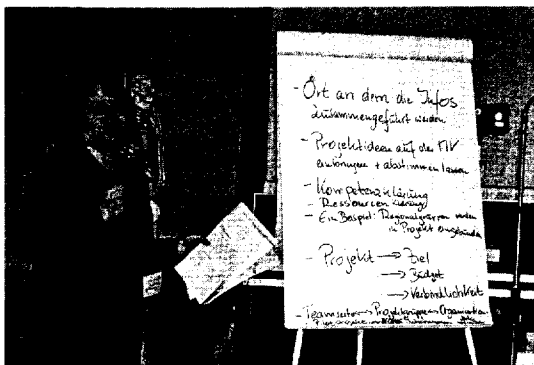 - Ort an dem die Infos
zusammengeführt werden
- Projektideen auf der MV
einbringen + abstimmen lassen
- Kompetenzklärung
- Ressourcenklärung
- Ein Beispiel: Regionalgruppen werden
in Projekt eingebunden
- Projekt → Ziel
→ Budget
→ Verbindlichkeit
- Projektgruppen Organisation